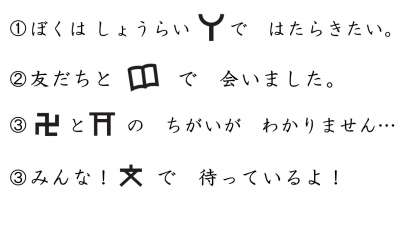 ①ぼくは しょうらい で はたらきたい。
②友だちと で 会いました。
③卍と⛩の ちがいが わかりません…
③みんな！文で 待っているよ！